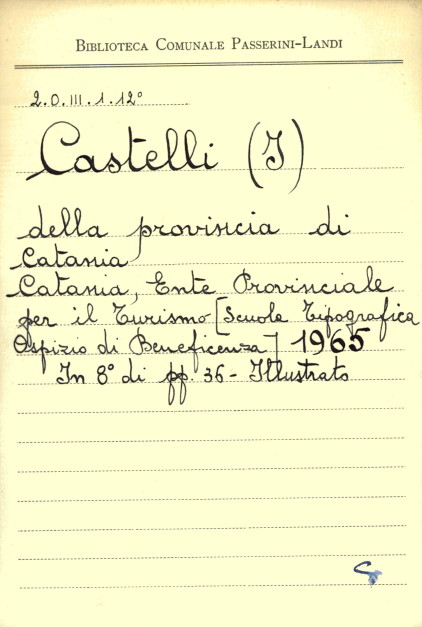 BIBLIOTECA COMUNALE PASSERINI-LANDI
2.0.III.1.12°
Castelli (I)
della provincia di
Catania
Catania, Ente Provinciale
per il Turismo [Scuola Tipografica
Ospizio di Beneficenza] 1965
In 8° di pp. 36 - Illustrato